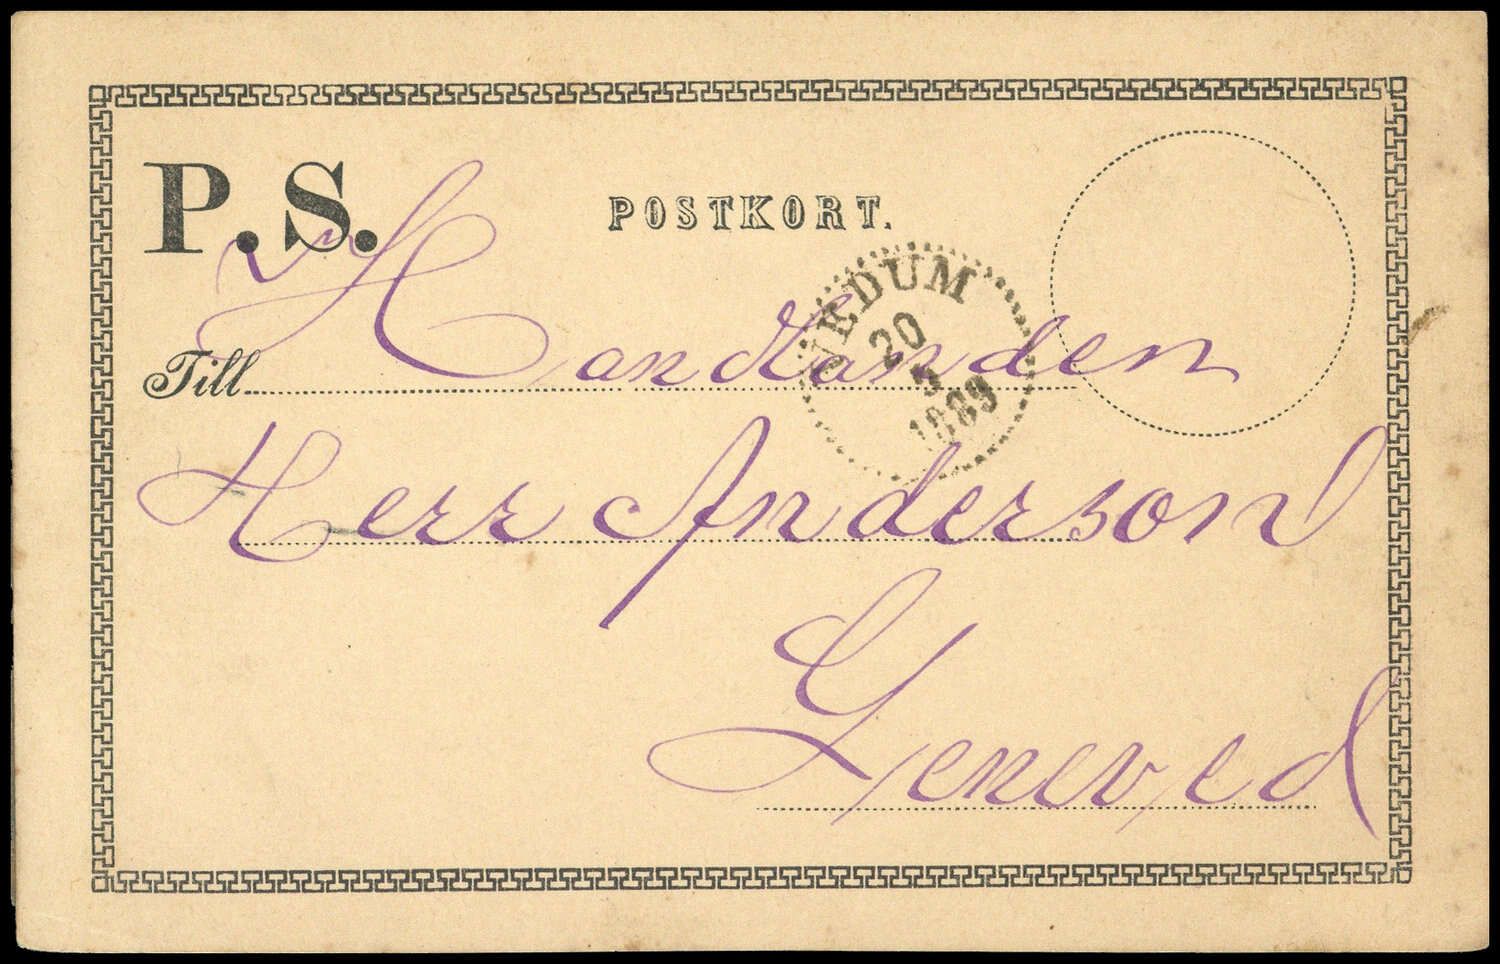 P.S.
POSTKORT.
JEDUM
20
5
1889
Till Handlanden
Herr Anderson
Genevad